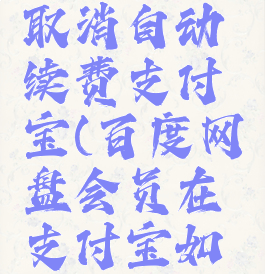 取消自动
续费支付
宝(百度网
盘会员在
支付宝如